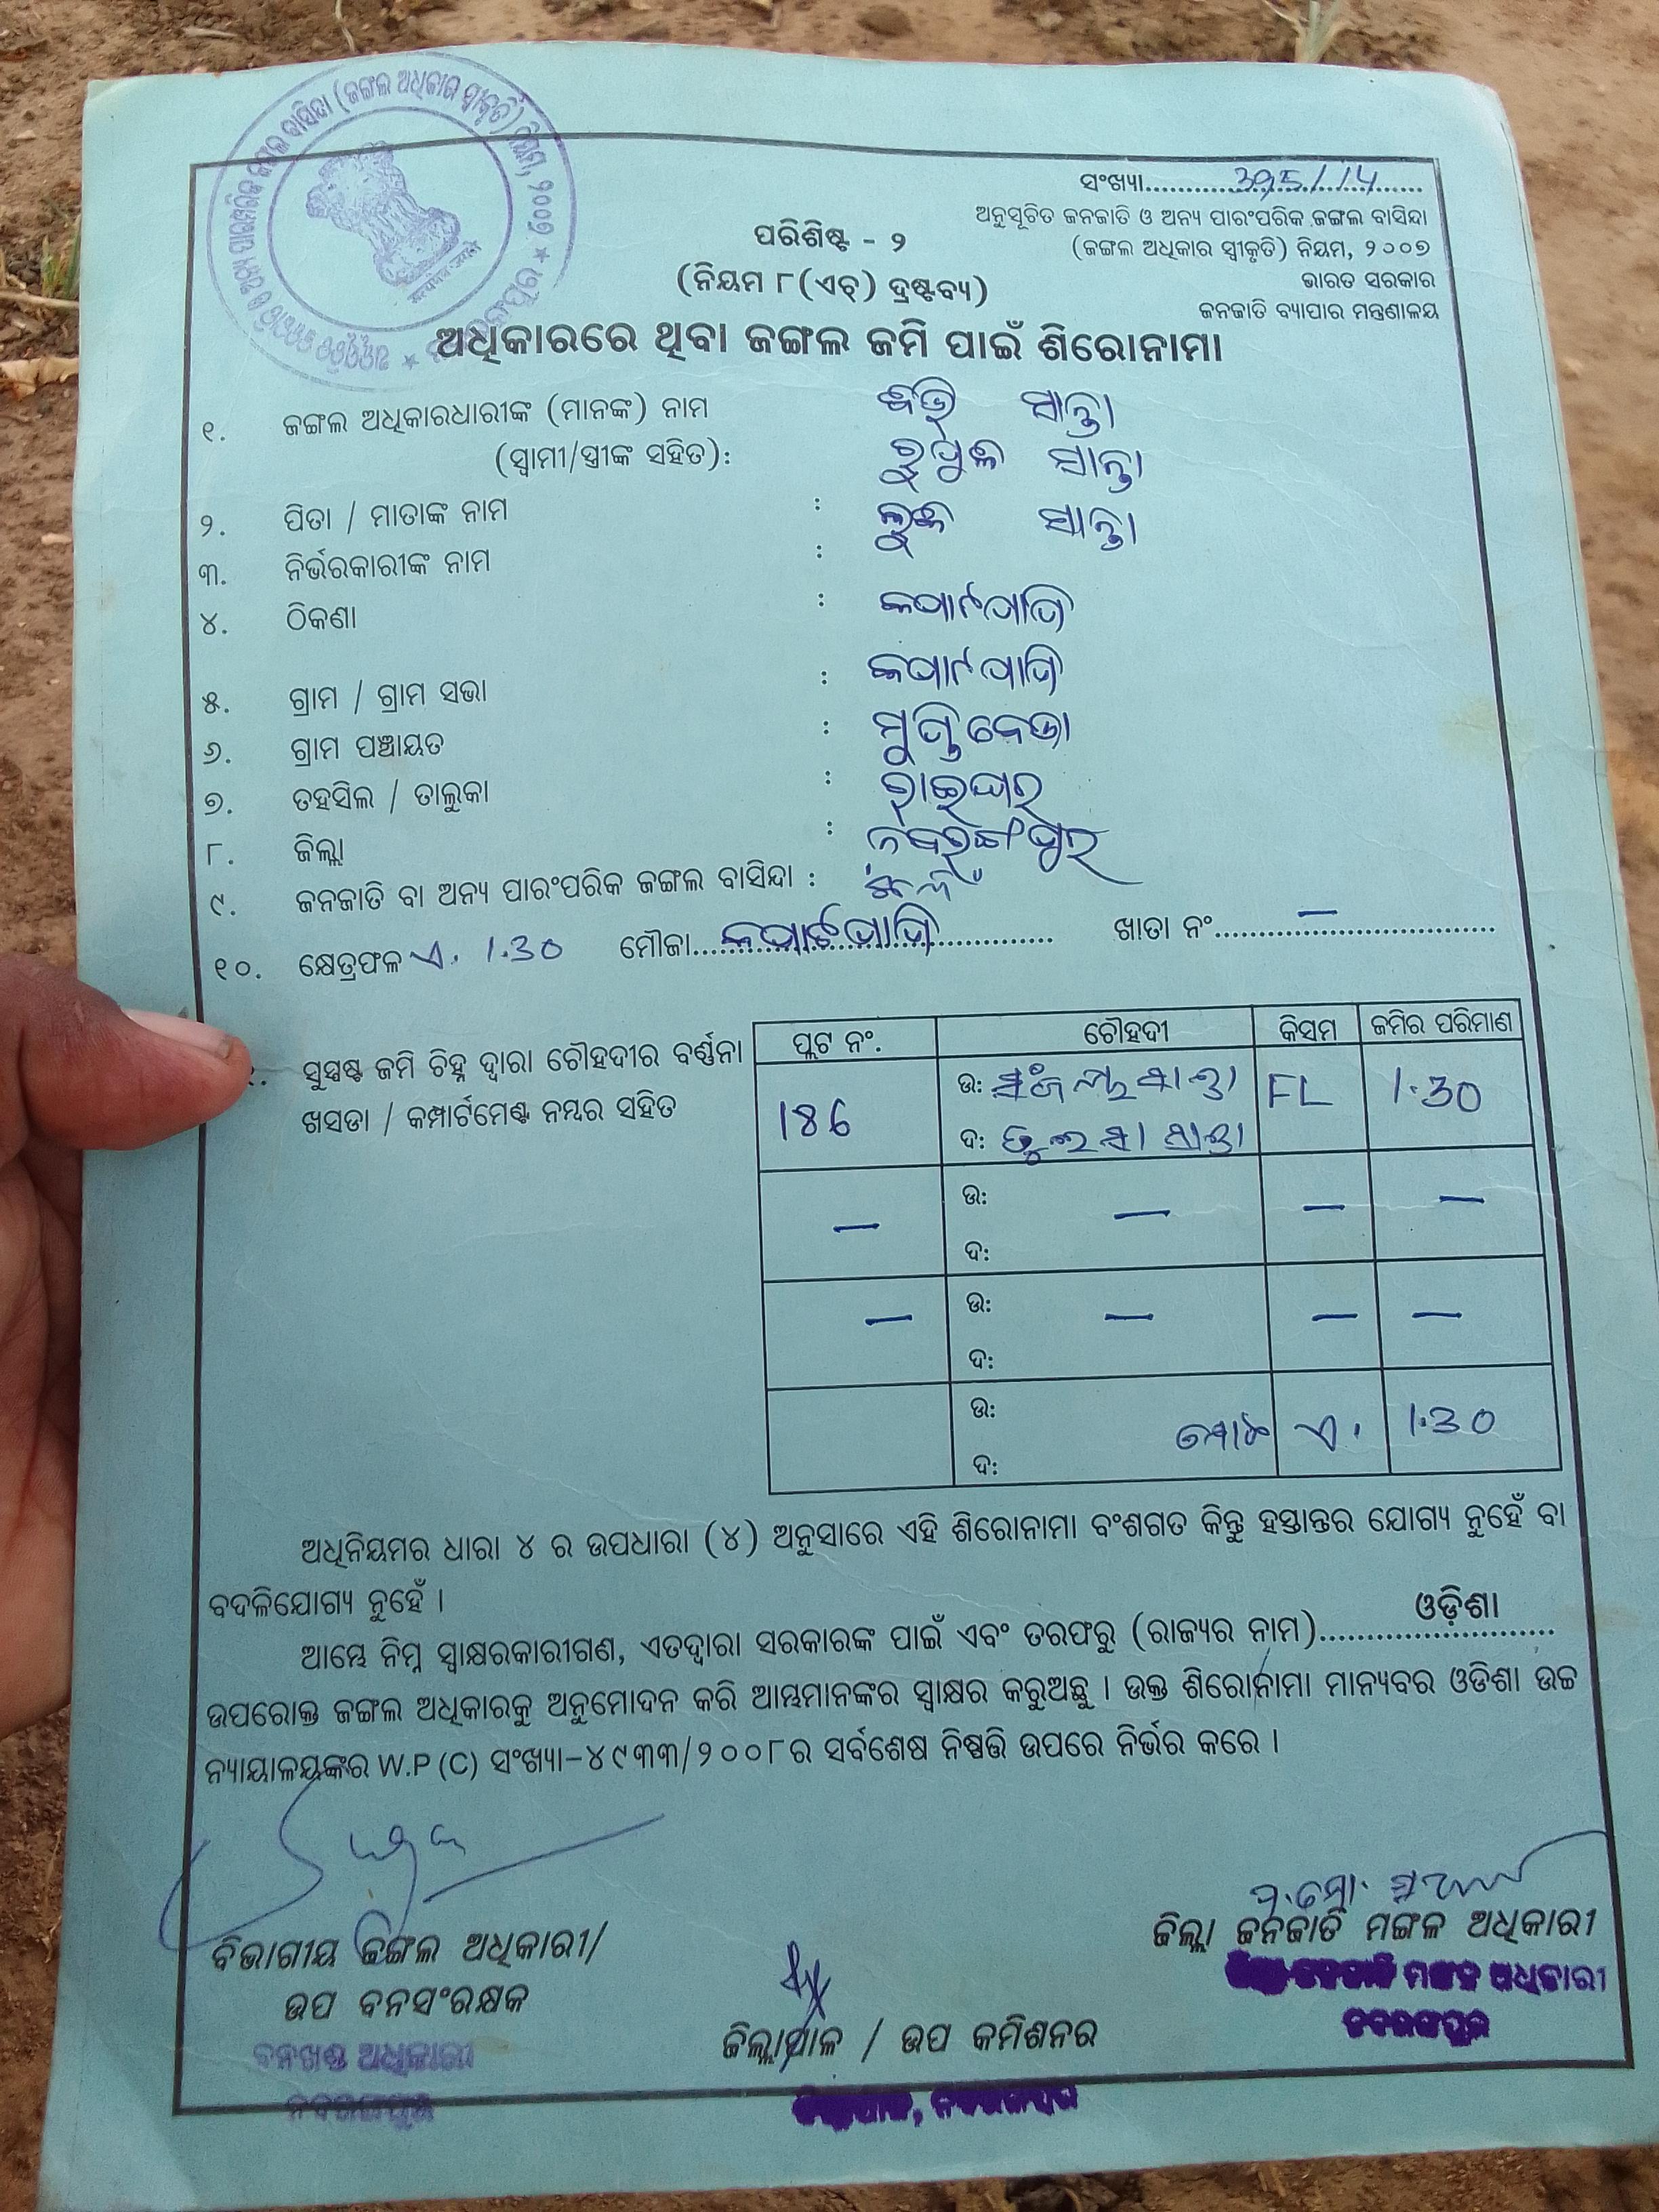 ସଂଖ୍ୟା.............395/14.............
ଅନୁସୂଚିତ ଜନଜାତି ଓ ଅନ୍ୟ ପାରଂପରିକ ଜଙ୍ଗଲ ବାସିନ୍ଦା
(ଜଙ୍ଗଲ ଅଧିକାର ସ୍ୱୀକୃତି) ନିୟମ, ୨୦୦୭
ଭାରତ ସରକାର
ଜନଜାତି ବ୍ୟାପାର ମନ୍ତ୍ରଣାଳୟ
ପରିଶିଷ୍ଟ - ୨
(ନିୟମ ୮(ଏଚ୍) ଦ୍ରଷ୍ଟବ୍ୟ)
ଅଧିକାରରେ ଥିବା ଜଙ୍ଗଲ ଜମି ପାଇଁ ଶିରୋନାମା
୧. ଜଙ୍ଗଲ ଅଧିକାରଧାରୀଙ୍କ (ମାନଙ୍କ) ନାମ ସାନ୍ତା
(ସ୍ୱାମୀ/ସ୍ତ୍ରୀଙ୍କ ସହିତ): ସାନ୍ତା
୨. ପିତା / ମାତାଙ୍କ ନାମ : ସାନ୍ତା
୩. ନିର୍ଭରକାରୀଙ୍କ ନାମ :
୪. ଠିକଣା :
୫. ଗ୍ରାମ / ଗ୍ରାମ ସଭା :
୬. ଗ୍ରାମ ପଞ୍ଚାୟତ :
୭. ତହସିଲ / ତାଲୁକା : ରାଇଘର
୮. ଜିଲ୍ଲା : ନବରଙ୍ଗପୁର
୯. ଜନଜାତି ବା ଅନ୍ୟ ପାରଂପରିକ ଜଙ୍ଗଲ ବାସିନ୍ଦା :
୧୦. କ୍ଷେତ୍ରଫଳ ଏ. 1.30 ମୌଜା............ ଖାତା ନଂ.....—.....
ସୁସ୍ପଷ୍ଟ ଜମି ଚିହ୍ନ ଦ୍ୱାରା ଚୌହଦୀର ବର୍ଣ୍ଣନା
ଖସଡା / କମ୍ପାର୍ଟମେଣ୍ଟ ନମ୍ବର ସହିତ
ପ୍ଲଟ ନଂ. ଚୌହଦୀ କିସମ ଜମିର ପରିମାଣ
186 ଉ: FL 1.30
ଦ:
— ଉ: — — —
ଦ:
— ଉ: — — —
ଦ:
ଉ: ମୋଟ ଏ. 1.30
ଦ:
ଅଧିନିୟମର ଧାରା ୪ ର ଉପଧାରା (୪) ଅନୁସାରେ ଏହି ଶିରୋନାମା ବଂଶଗତ କିନ୍ତୁ ହସ୍ତାନ୍ତର ଯୋଗ୍ୟ ନୁହେଁ ବା
ବଦଳିଯୋଗ୍ୟ ନୁହେଁ ।
ଆମ୍ଭେ ନିମ୍ନ ସ୍ୱାକ୍ଷରକାରୀଗଣ, ଏତଦ୍ୱାରା ସରକାରଙ୍କ ପାଇଁ ଏବଂ ତରଫରୁ (ରାଜ୍ୟର ନାମ).......ଓଡ଼ିଶା.......
ଉପରୋକ୍ତ ଜଙ୍ଗଲ ଅଧିକାରକୁ ଅନୁମୋଦନ କରି ଆମ୍ଭମାନଙ୍କର ସ୍ୱାକ୍ଷର କରୁଅଛୁ । ଉକ୍ତ ଶିରୋନାମା ମାନ୍ୟବର ଓଡିଶା ଉଚ୍ଚ
ନ୍ୟାୟାଳୟଙ୍କର W.P (C) ସଂଖ୍ୟା-୪୯୩୩/୨୦୦୮ର ସର୍ବଶେଷ ନିଷ୍ପତ୍ତି ଉପରେ ନିର୍ଭର କରେ ।
ବିଭାଗୀୟ ଜଙ୍ଗଲ ଅଧିକାରୀ/
ଉପ ବନସଂରକ୍ଷକ
ବନଖଣ୍ଡ ଅଧିକାରୀ
ନବରଙ୍ଗପୁର
ଜିଲ୍ଲାପାଳ / ଉପ କମିଶନର
ଜିଲ୍ଲାପାଳ, ନବରଙ୍ଗପୁର
ଜିଲ୍ଲା ଜନଜାତି ମଙ୍ଗଳ ଅଧିକାରୀ
ଜିଲ୍ଲା ଜନଜାତି ମଙ୍ଗଳ ଅଧିକାରୀ
ନବରଙ୍ଗପୁର